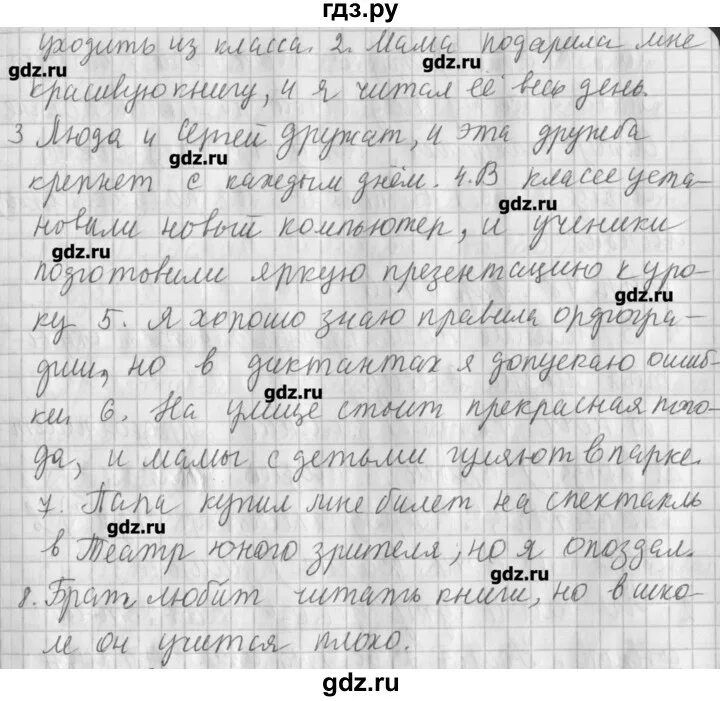 гдз.ру
уходить из класса. 2. Мама подарила мне
gdz.ru gdz.ru
красивую книгу, и я читал её весь день.
3 Люда и Сергей дружат, и эта дружба
gdz.ru
крепнет с каждым днём. 4. В классе уста-
gdz.ru
новили новый компьютер, и ученики
gdz.ru
подготовили яркую презентацию к уро-
gdz.ru
ку 5. Я хорошо знаю правила орфогра-
фии, но в диктантах я допускаю ошиб-
gdz.ru
ки 6. На улице стоит прекрасная пого-
да, и мамы с детьми гуляют в парке.
7. Папа купил мне билет на спектакль
gdz.ru
в Театр юного зрителя, но я опоздал.
gdz.ru
8. Брат любит читать книги, но в шко-
ле он учится плохо.
gdz.ru